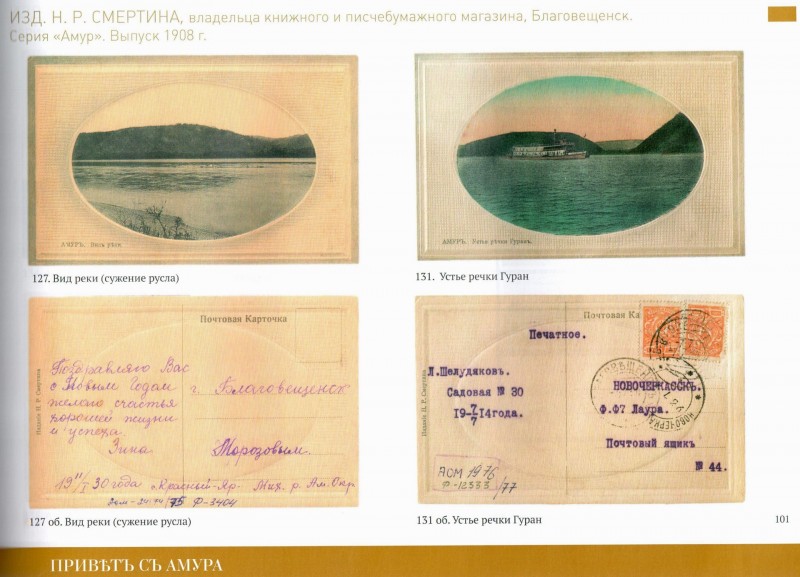 ИЗД. Н. Р. СМЕРТИНА, владельца книжного и писчебумажного магазина, Благовещенск.
Серия «Амур». Выпуск 1908 г.
АМУРЪ. Видъ рѣки.
127. Вид реки (сужение русла)
АМУРЪ. Устье рѣчки Гуранъ.
131. Устье речки Гуран
Почтовая Карточка
Изданіе Н. Р. Смертина
Поздравляю Вас
с Новым Годом
желаю счастья
хорошей жизни
и успеха
Зина
г. Благовещенск
Морозовым.
19 11/I 30 года "Красный-Яр. Мих. р. Ам. Окр.
75 Ф-3404
127 об. Вид реки (сужение русла)
Почтовая Карточка
Изданіе Н. Р. Смертина
Печатное.
Л. Шелудяков.
Садовая № 30
19-7/7 14года.
НОВОЧЕРКАССКЪ.
Ф.ФТ Лаура.
Почтовый ящик
№ 44.
АОМ 1976
Ф-12333/77
НОВОЧЕРКА
131 об. Устье речки Гуран
101
ПРИВѢТЪ СЪ АМУРА